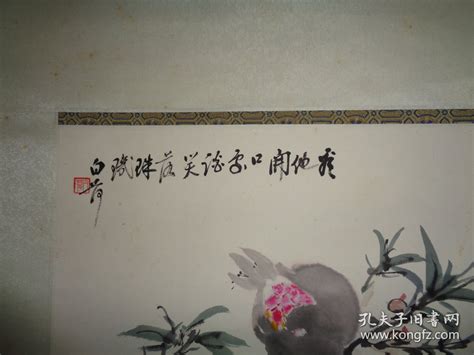 看他開口處談笑落珠璣
白荷
孔夫子旧书网
www.kongfz.com